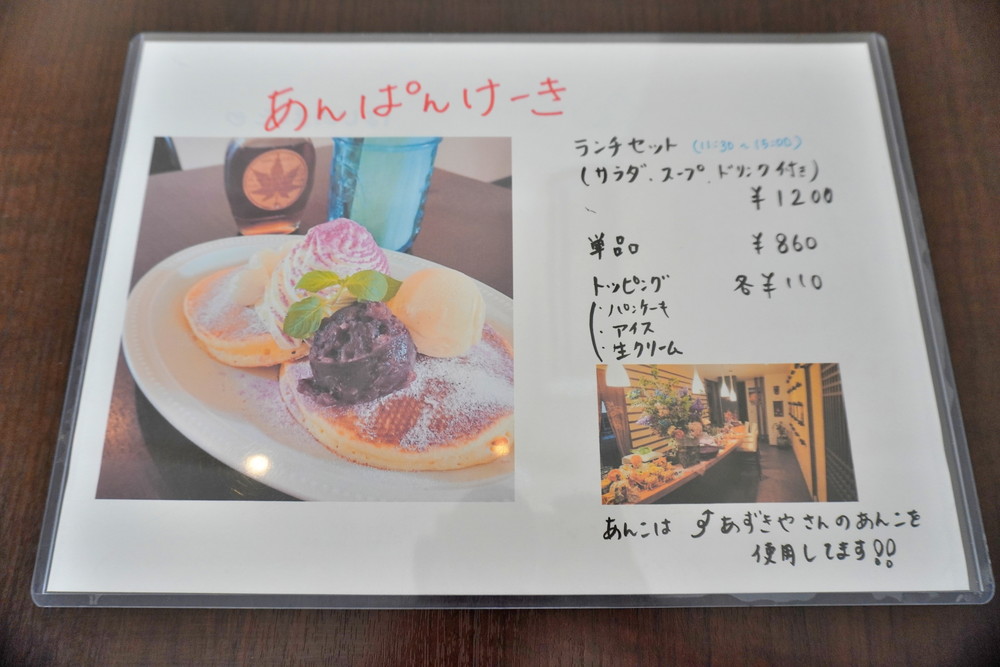 あんぱんけーき
ランチセット (11:30〜15:00)
(サラダ、スープ、ドリンク付き)
¥1200
単品 ¥860
トッピング 各¥110
・パンケーキ
・アイス
・生クリーム
あんこは あずきやさんのあんこを
使用してます!!